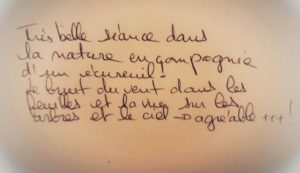 Très belle séance dans
la nature en compagnie
d'un écureuil -
le bruit du vent dans les
feuilles et la vue sur les
arbres et le ciel → agréable +++ !